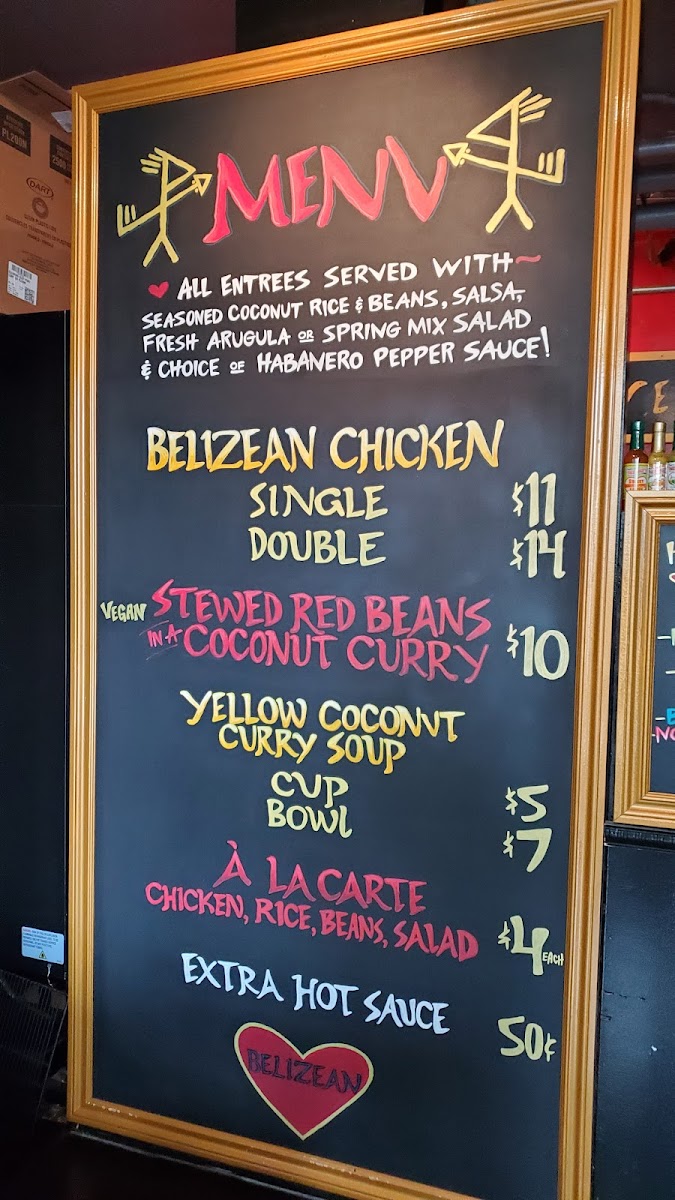 MENU
ALL ENTREES SERVED WITH~
SEASONED COCONUT RICE & BEANS, SALSA,
FRESH ARUGULA OR SPRING MIX SALAD
& CHOICE OF HABANERO PEPPER SAUCE!
BELIZEAN CHICKEN
SINGLE $11
DOUBLE $14
VEGAN STEWED RED BEANS
IN A COCONUT CURRY $10
YELLOW COCONUT
CURRY SOUP
CUP $5
BOWL $7
À LA CARTE
CHICKEN, RICE, BEANS, SALAD $4 EACH
EXTRA HOT SAUCE 50¢
BELIZEAN
DART
PL200N